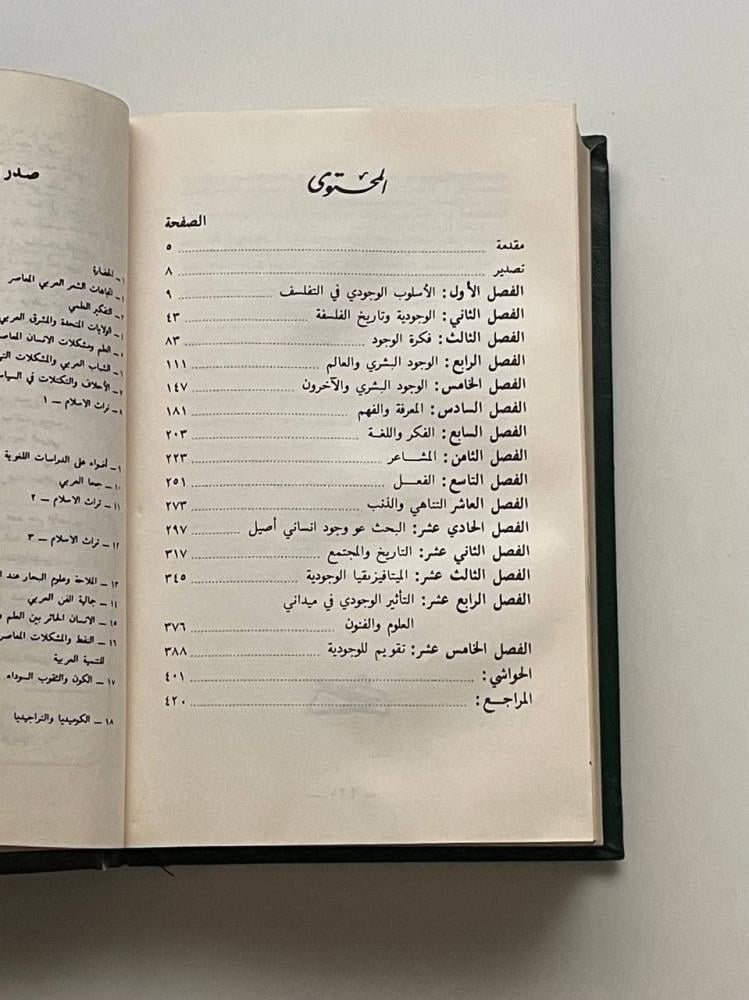 المحتوى
الصفحة
مقدمة ........ ٥
تصدير ........ ٨
الفصل الأول: الأسلوب الوجودي في التفلسف ........ ٩
الفصل الثاني: الوجودية وتاريخ الفلسفة ........ ٤٣
الفصل الثالث: فكرة الوجود ........ ٨٣
الفصل الرابع: الوجود البشري والعالم ........ ١١١
الفصل الخامس: الوجود البشري والآخرون ........ ١٤٧
الفصل السادس: المعرفة والفهم ........ ١٨١
الفصل السابع: الفكر واللغة ........ ٢٠٣
الفصل الثامن: المشاعر ........ ٢٢٣
الفصل التاسع: الفعل ........ ٢٥١
الفصل العاشر التناهي والذنب ........ ٢٧٣
الفصل الحادي عشر: البحث عو وجود انساني أصيل ........ ٢٩٧
الفصل الثاني عشر: التاريخ والمجتمع ........ ٣١٧
الفصل الثالث عشر: الميتافيزيقيا الوجودية ........ ٣٤٥
الفصل الرابع عشر: التأثير الوجودي في ميداني
العلوم والفنون ........ ٣٧٦
الفصل الخامس عشر: تقويم للوجودية ........ ٣٨٨
الحواشي: ........ ٤٠١
المراجع: ........ ٤٢٠
صدر
١ - الحضارة
اتجاهات الشعر العربي المعاصر
التفكير العلمي
الولايات المتحدة والمشرق العربي
العلم ومشكلات الانسان المعاصر
الشباب العربي والمشكلات
٧ - الأحلاف والتكتلات في
٨ - تراث الاسلام - ١
٩ - أضواء على الدراسات اللغوية
١٠ - جحا العربي
١١ - تراث الاسلام - ٢
١٢ - تراث الاسلام - ٣
١٣ - الملاحة وعلوم البحار عند
١٤ - جمالية الفن العربي
١٥ - الانسان الحائر بين العلم
١٦ - النفط والمشكلات المعاصرة
للتنمية العربية
١٧ - الكون والثقوب السوداء
١٨ - الكوميديا والتراجيديا